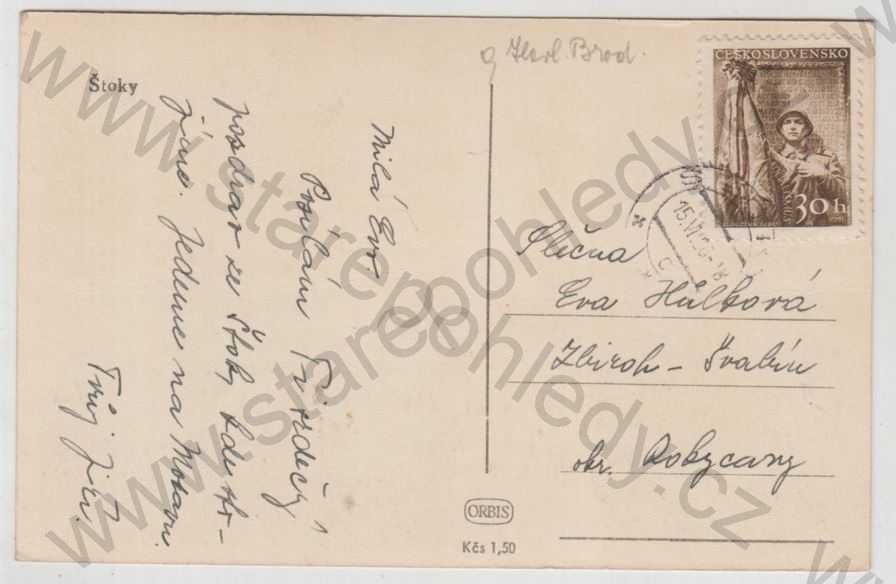 Štoky
Milá Evo
Posílám Ti srdečný
pozdrav ze Štok, kde
jsme. Jedeme na Moravu.
Tvůj Jiří.
Havl. Brod.
ČESKOSLOVENSKO
30 h
Slečna
Eva Hůlková
Zbiroh - Švabín
okr. Rokycany
ORBIS
Kčs 1,50
www.starepohledy.cz
www.starepohledy.cz